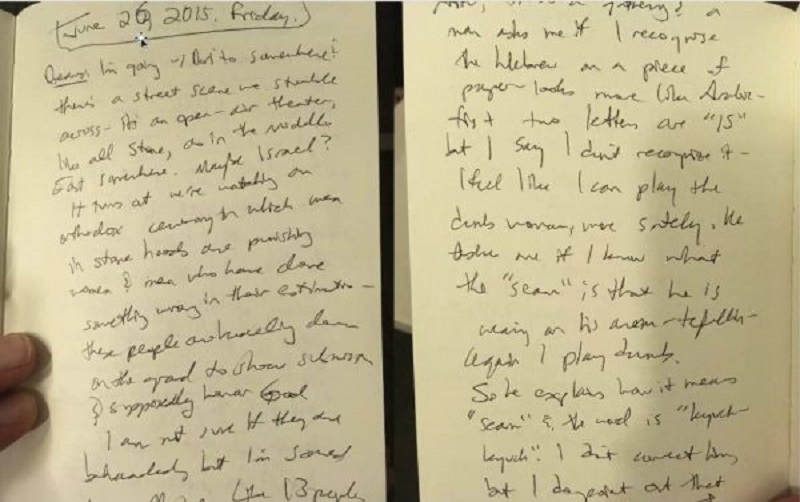 June 26, 2015. Friday.
Dream: I'm going to somewhere?
there's a street scene we stumble
across - it's an open-air theater,
like all stone, as in the Middle
East somewhere. Maybe Israel?
It turns out we're watching an
orthodox ceremony in which men
in stone hoods are punishing
women & men who have done
something wrong in their estimation -
these people are kneeling down
on the ground to show submission
& supposedly honor God
I am not sure if they are
beheaded, but I'm scared
like 13 people
a
man asks me if I recognize
the Hebrew on a piece of
paper - looks more like Arabic -
first two letters are "15"
but I say I don't recognize it -
I feel like I can play the
dumb woman, more safely. He
asks me if I know what
the "seam" is that he is
wearing on his arm - tefillin -
again I play dumb.
So he explains how it means
"seam" & the word is
I don't correct him
but I do point out that